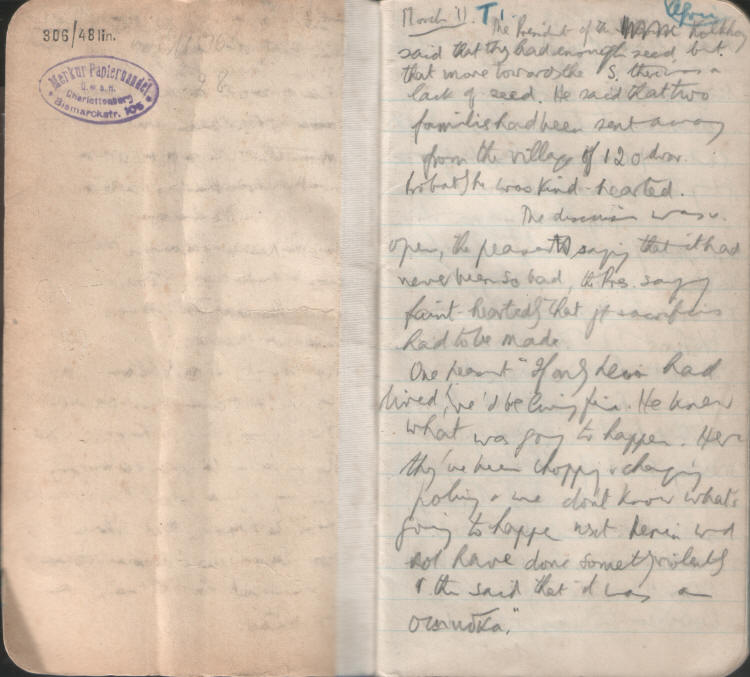 306/48 lin.
Merkur Papierhandel
G.m.b.H.
Charlottenburg
Bismarckstr. 105
March 11. T 1.
The President of the kolkhoz
said that they had enough seed but
that more towards the S. there is a
lack of seed. He said that two
families had been sent away
from the village of 120 dvor.
he was kind-hearted.
The discussion was
open, the peasants saying that it had
never been so bad, the Pres. saying
faint-heartedly that sacrifices
had to be made
One peasant "If only Lenin had
lived, we'd be living fine. He knew
what was going to happen. Here
they've been chopping & changing
policy & we don't know what's
going to happen next. Lenin wd
not have done something violently
& then said that it was an
ошибка."